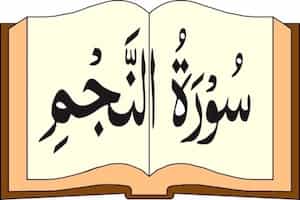 سُورَةُ النَّجْمِ